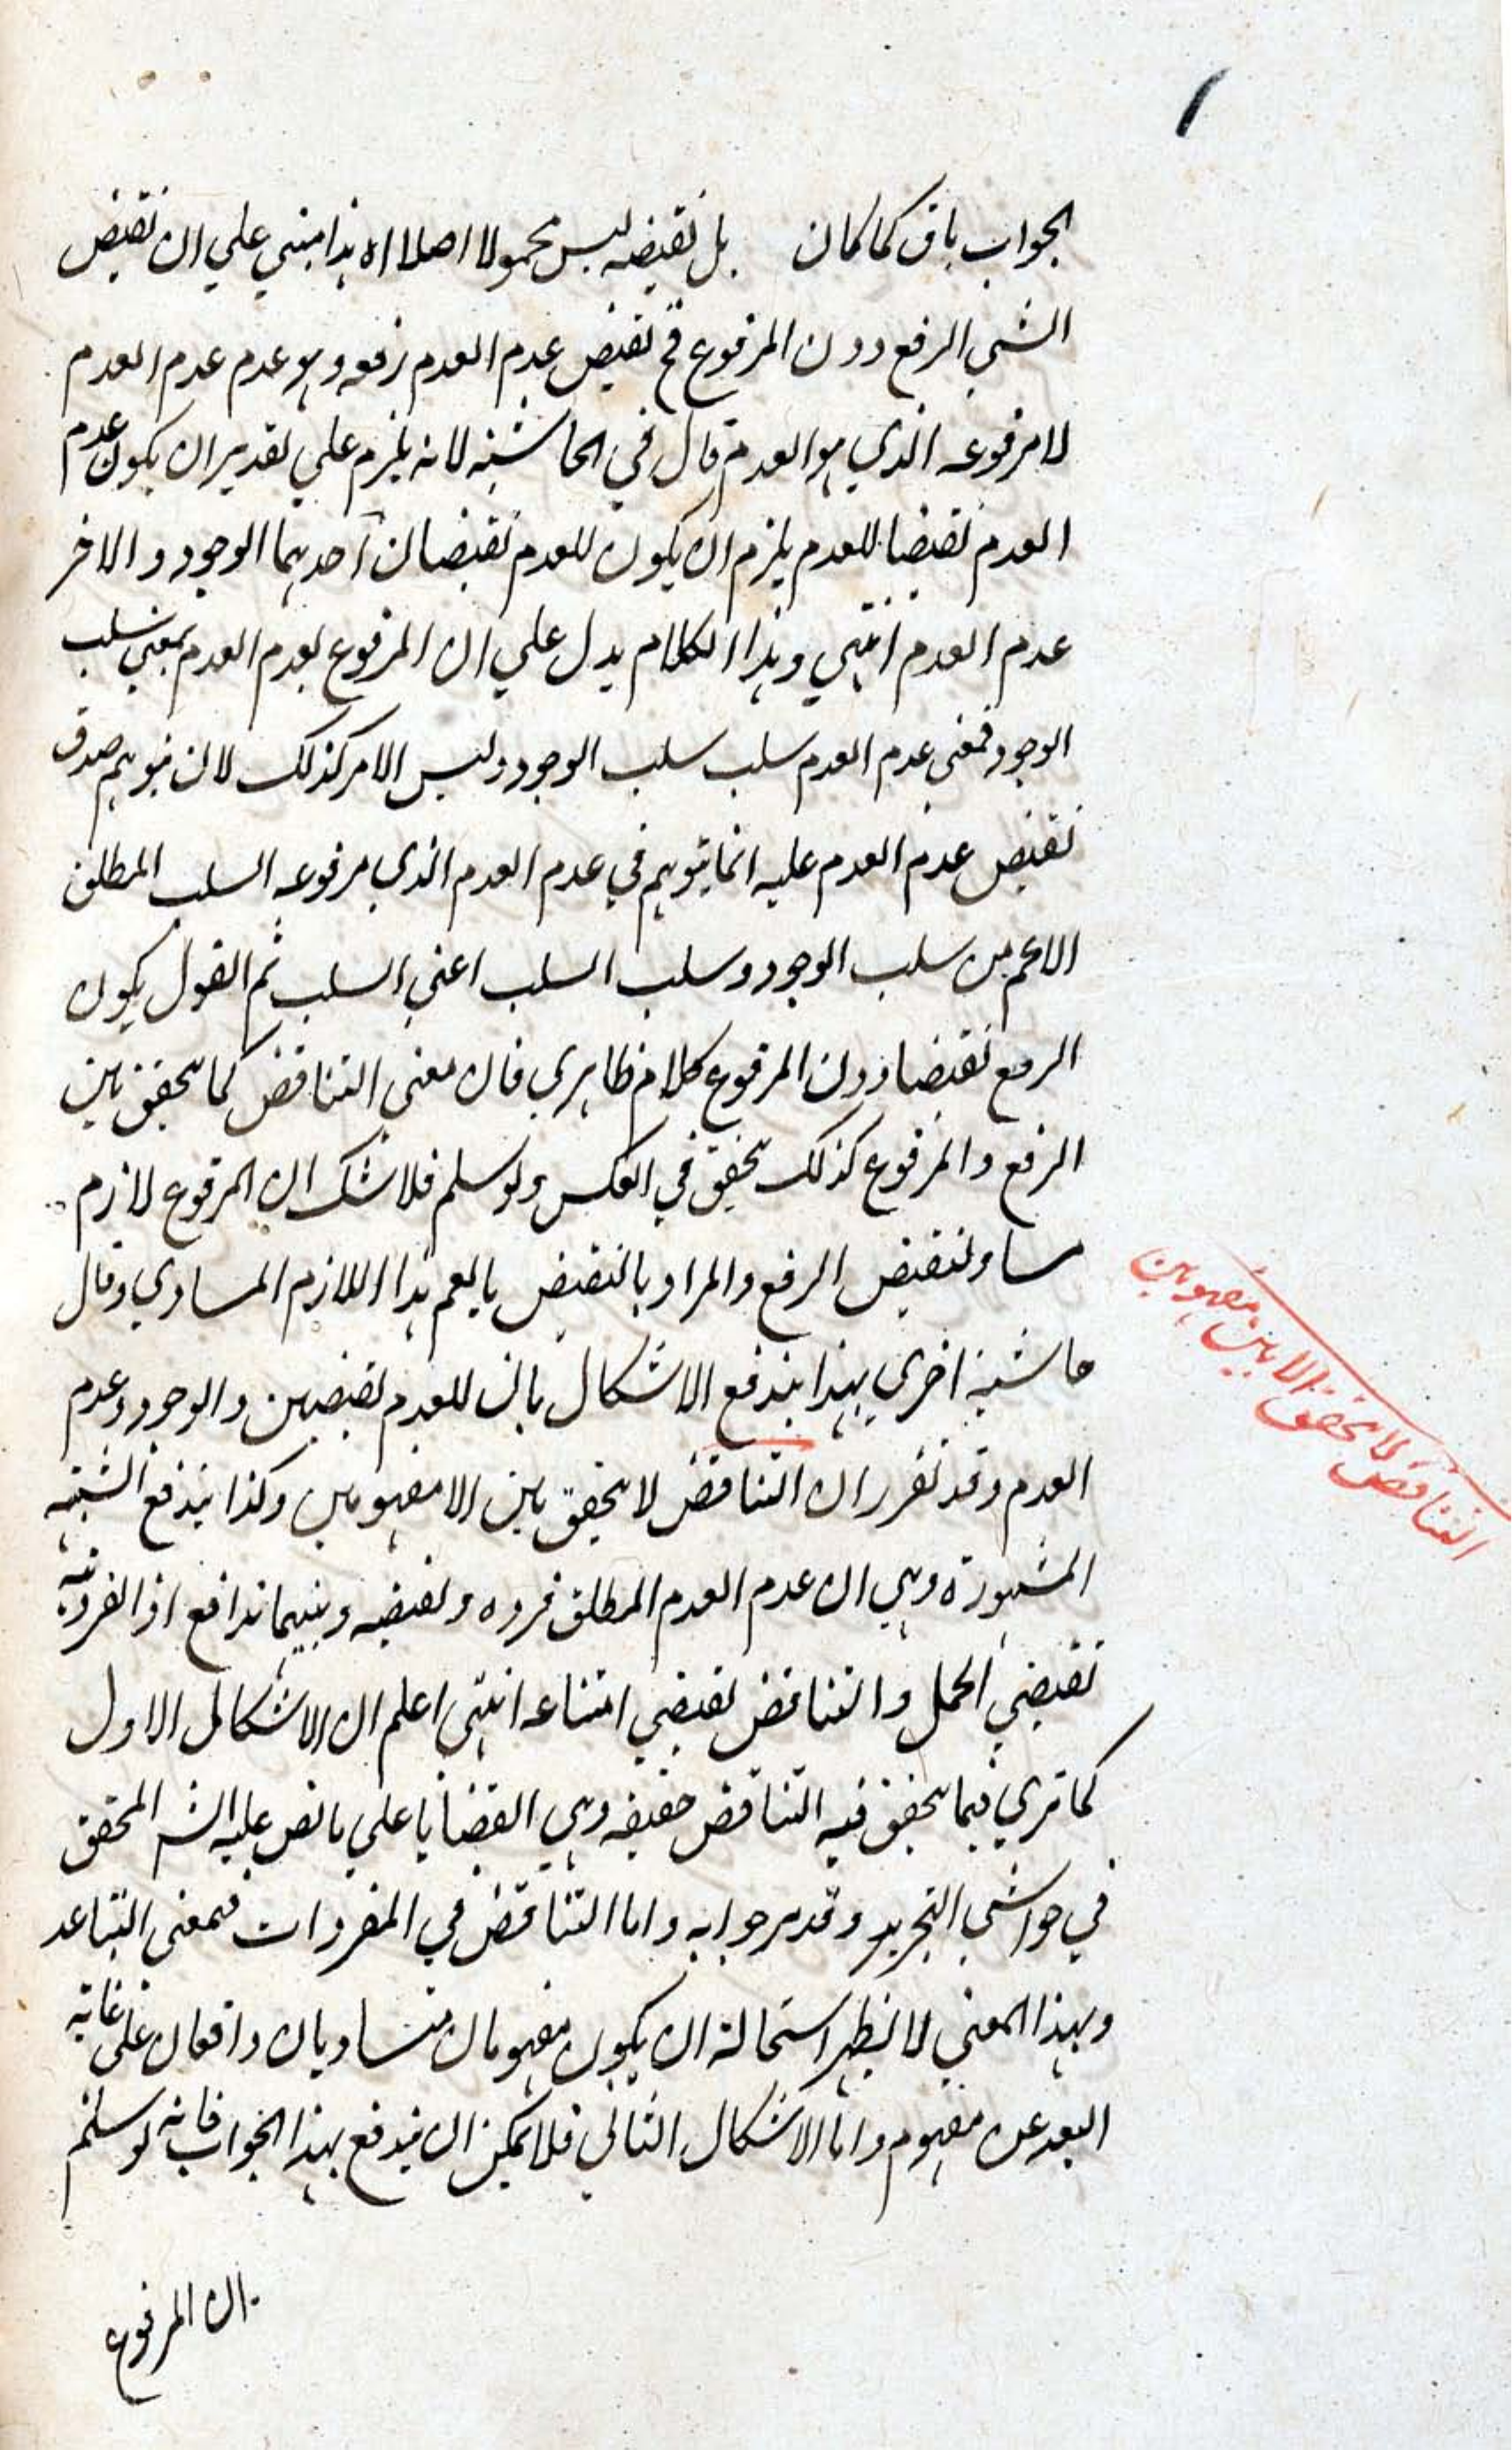 الجواب باق كما كان بل نقيضه ليس محمولا اصلا اه هذا مبني علي ان نقيض
الشيي الرفع دون المرفوع فح نقيض عدم العدم رفعه وهو عدم عدم العدم
لا مرفوعه الذي هو العدم قال في الحاشية لانه يلزم علي تقدير ان يكون عدم
العدم نقيضا للعدم يلزم ان يكون للعدم نقيضان احدهما الوجود والاخر
عدم العدم انتهي وهذا الكلام يدل علي ان المرفوع لعدم العدم بمعني سلب
الوجود فمعني عدم العدم سلب سلب الوجود وليس الامر كذلك لان توهم صدق
نقيض عدم العدم عليه انما يتوهم في عدم العدم الذي مرفوعه السلب المطلق
الاعم من سلب الوجود وسلب السلب اعني السلب ثم القول بكون
الرفع نقيضا دون المرفوع كلام ظاهري فان معني التناقض كما يتحقق بين
الرفع والمرفوع كذلك يتحقق في العكس ولو سلم فلا شك ان المرفوع لازم
مساو لنقيض الرفع والمراد بالنقيض ما يعم هذا اللازم المساوي وقال
حاشية اخري بهذا يندفع الاشكال بان للعدم نقيضين والوجود وعدم
العدم وقد تقرر ان التناقض لا يتحقق بين الا مفهومين وكذا يندفع الشبهة
المشهورة وهي ان عدم العدم المطلق فرده ونقيضه وبينهما تدافع اذ الفردية
تقتضي الحمل والتناقض يقتضي امتناعه انتهي اعلم ان الاشكال الاول
كما تري فيما يتحقق فيه التناقض حقيقة وهي القضايا علي ما نص عليه الش المحقق
في حواشي التجريد وقد مر جوابه واما التناقض في المفردات فبمعني التباعد
وبهذا المعني لا يظهر استحالة ان يكون مفهومان متساويان واقعان علي غاية
البعد عن مفهوم واما الاشكال الثاني فلا يمكن ان يندفع بهذا الجواب فانه لو سلم
ان المرفوع
التناقض لا يتحقق الا بين مفهومين